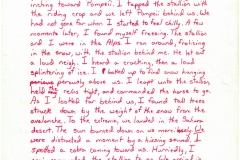 inching toward Pompeii. I tapped the stallion with
the riding crop and we left Pompeii behind us. We
had not gone far when I started to feel chilly. A few
moments later, I found myself freezing. The stallion
and I were in the Alps. I ran around, frolicking
in the snow, with the stallion behind me. He let out
a loud neigh. I heard a crunching, then a loud
splintering of ice. I looked up to find snow hanging
perilously above us. I leapt onto the stallion,
held the reins tight, and commanded the horse to go.
As I looked far behind us, I found tall trees
struck down by the weight of the snow from the
avalanche. To the extreme, we landed in the Sahara
desert. The sun burned down on us mercilessly. We
were distracted a moment by a hissing sound. I
spotted a cobra coming toward us. Humidity, I